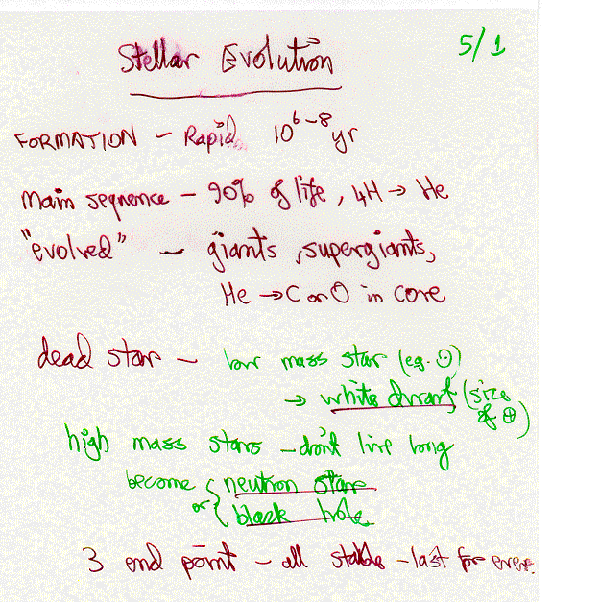 Stellar Evolution 5/1
FORMATION - Rapid 10^6-8 yr
Main sequence - 90% of life, 4H → He
"evolved" - giants, supergiants,
He → C or O in core
dead star - low mass star (eg. ☉)
→ white dwarf (size
of ⊕)
high mass stars - don't live long
become { neutron stars
or { black hole
3 end point - all stable - last for ever.